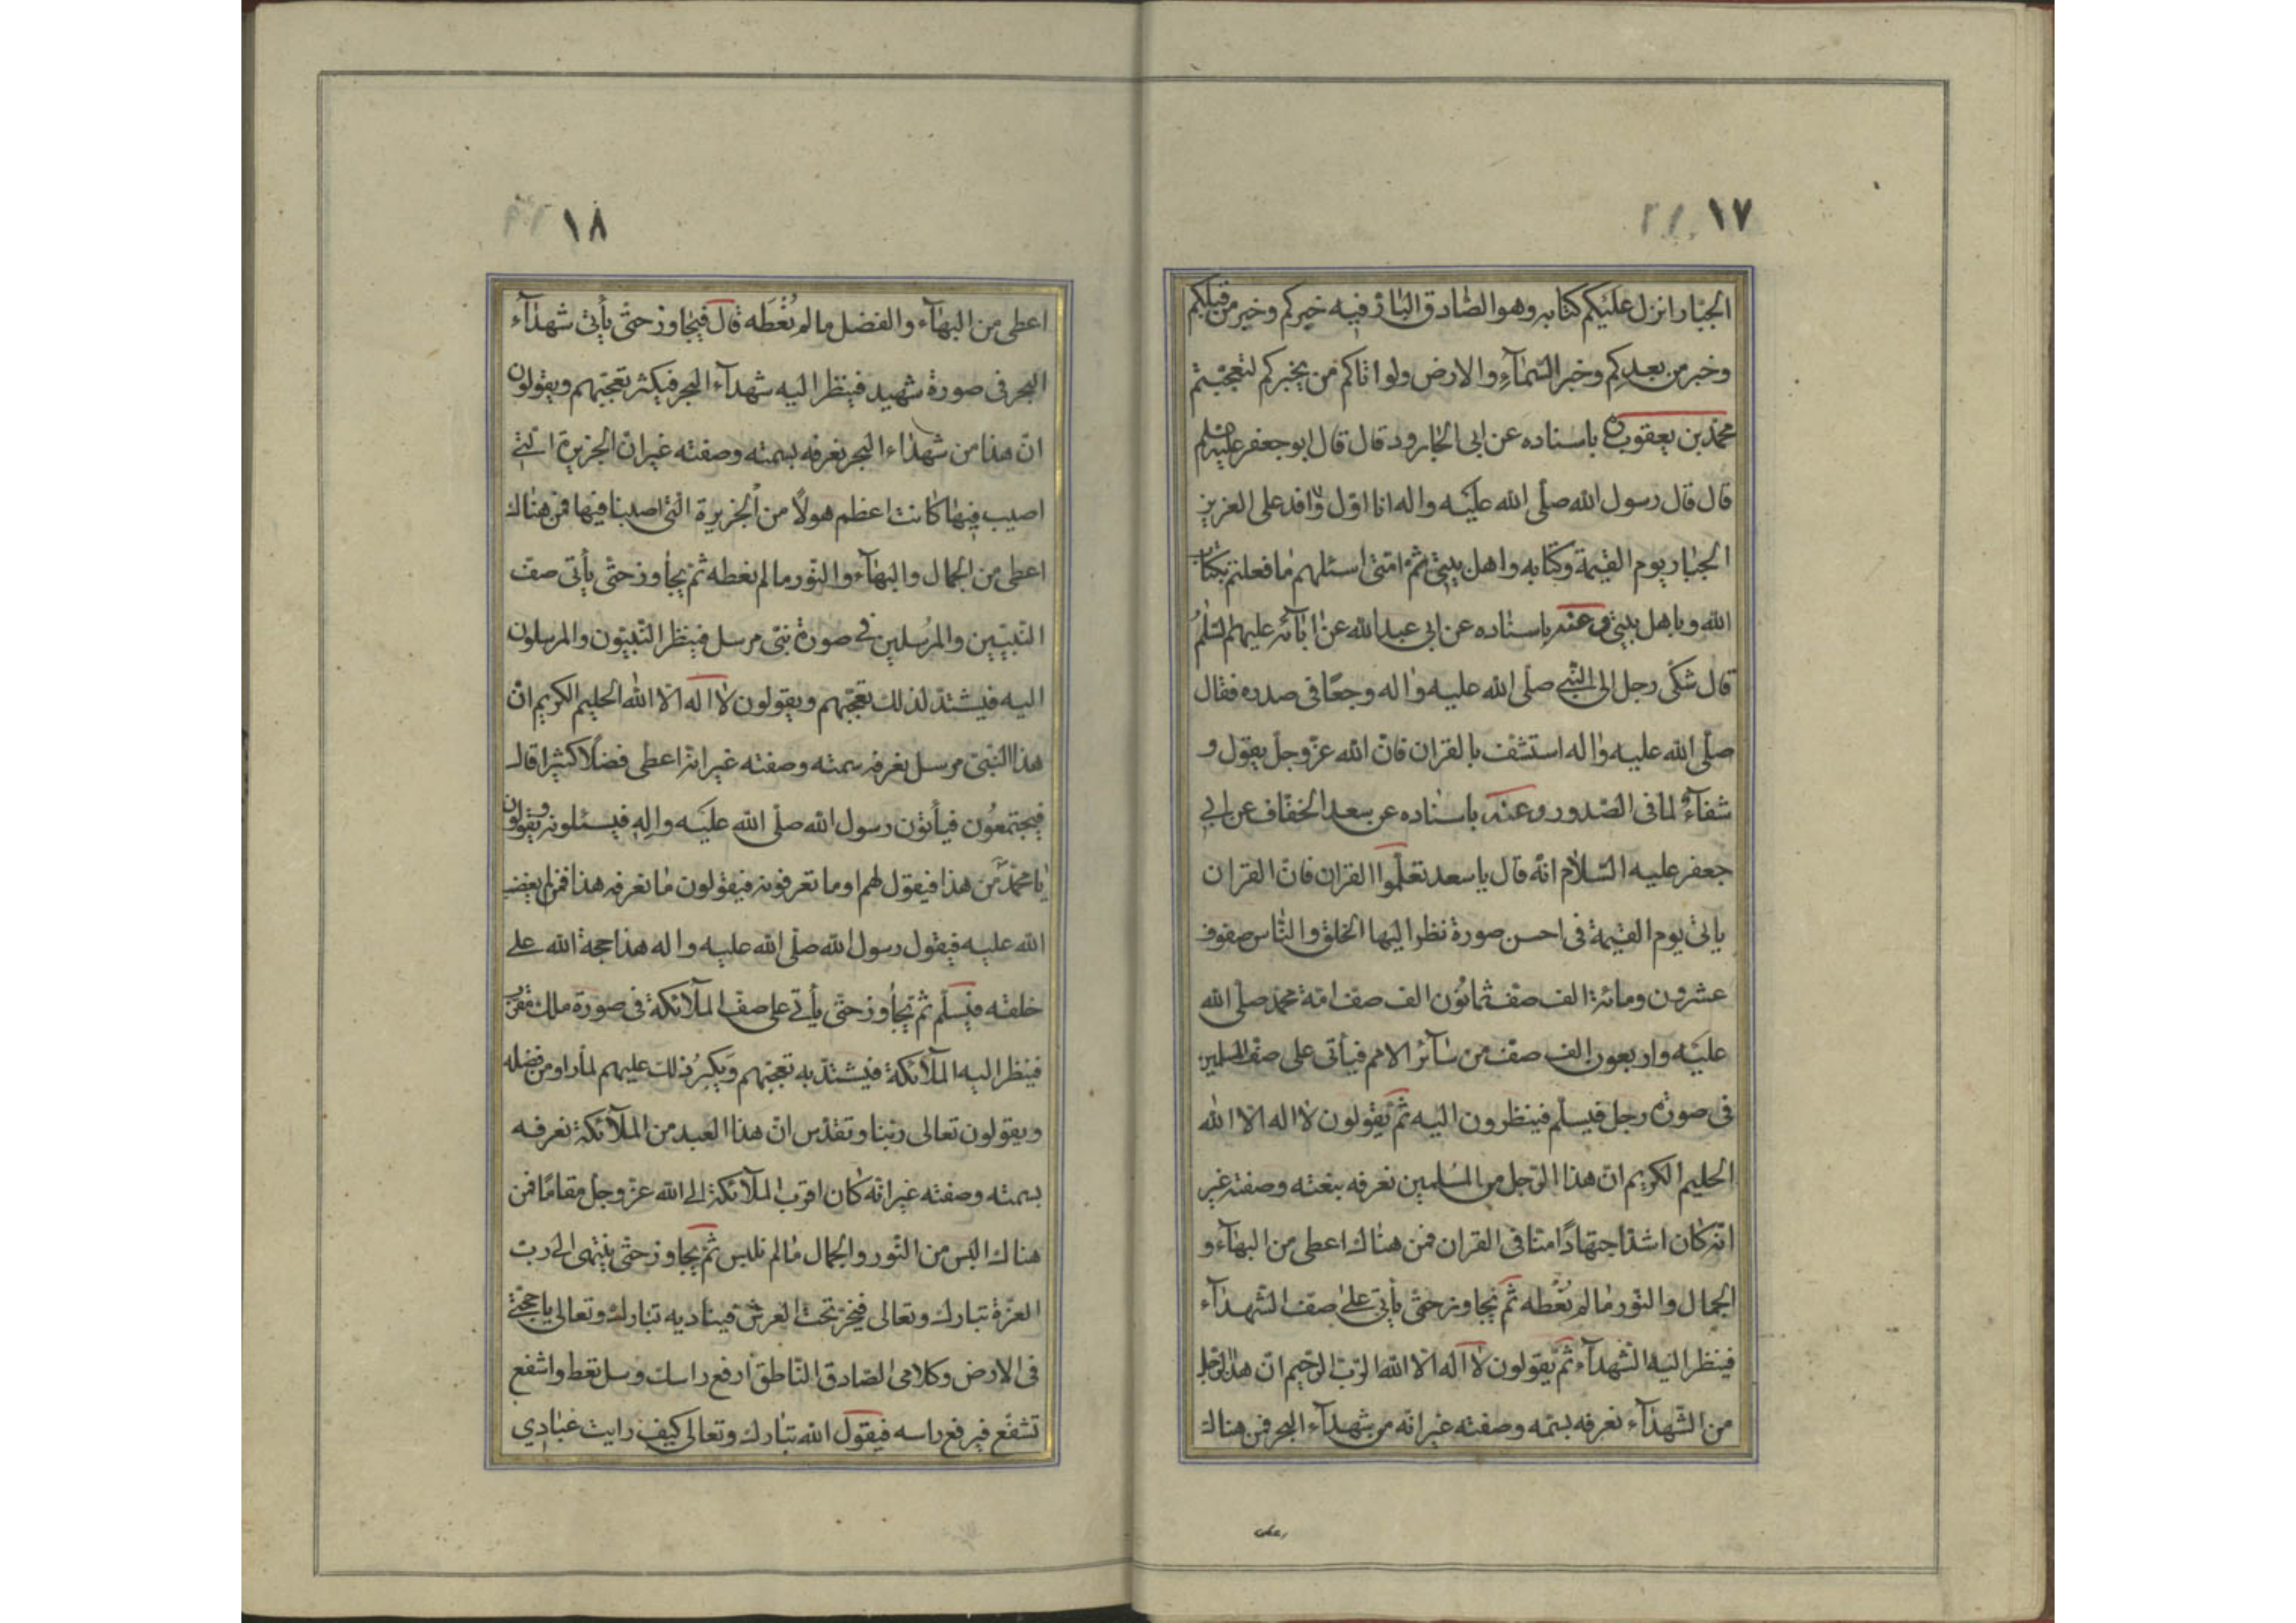 ١٧
الجبار انزل عليكم كتابه وهو الصادق البار فيه خبركم وخبر من قبلكم
وخبر من بعدكم وخبر السمآء والارض ولو اتاكم من يخبركم لتعجبتم
محمد بن يعقوب باسناده عن ابى الجارود قال قال ابو جعفر
قال قال رسول الله صلى الله عليه واله انا اول وافد على العزيز
الجبار يوم القيمة وكتابه واهل بيتى ثم امتى اسئلهم ما فعلتم بكتاب
الله وباهل بيتى وعنه باسناده عن ابى عبد الله عن ابآئه عليهم السلم
قال شكى رجل الى النبى صلى الله عليه واله وجعًا فى صدره فقال
صلى الله عليه واله استشف بالقران فانّ الله عزّ وجلّ يقول و
شفآءٌ لما فى الصّدور وعنه باسناده عن سعد الخفّاف عن ابى
جعفر عليه السّلام انّه قال يا سعد تعلّموا القران فانّ القران
ياتى يوم القيمة فى احسن صورة نظر اليها الخلق والنّاس صفوف
عشرون ومائة الف صفّ ثمانون الف صفّ امّة محمّد صلّى الله
عليه واربعون الف صفّ من سآئر الامم فيأتى على صفّ المسلمين
فى صورة رجل فيسلّم فينظرون اليه ثمّ يقولون لا اله الّا الله
الحليم الكريم انّ هذا الرّجل من المسلمين نعرفه بنعته وصفته غير
انّه كان اشدّ اجتهادًا منّا فى القران فمن هناك اعطى من البهآء و
الجمال والنّور ما لم نُعْطَه ثمّ يجاوز حتّى يأتى على صفّ الشّهدآء
فينظر اليه الشّهدآء ثمّ يقولون لا اله الّا الله الرّبّ الرّحيم انّ هذا الرّجل
من الشّهدآء نعرفه بسمته وصفته غير انّه من شهدآء البحر فمن هناك
١٨
اعطى من البهآء والفضل ما لم نُعْطَه قال فيجاوز حتّى يأتى شهدآء
البحر فى صورة شهيد فينظر اليه شهدآء البحر فيكثر تعجّبهم ويقولون
انّ هذا من شهدآء البحر نعرفه بسمته وصفته غير انّ الجزيرة الّتى
اصيب فيها كانت اعظم هولًا من الجزيرة الّتى اصبنا فيها فمن هناك
اعطى من الجمال والبهآء والنّور ما لم نعطه ثمّ يجاوز حتّى يأتى صفّ
النّبيّين والمرسلين فى صورة نبىّ مرسل فينظر النّبيّون والمرسلون
اليه فيشتدّ لذلك تعجّبهم ويقولون لا اله الّا الله الحليم الكريم انّ
هذا النّبىّ مرسل نعرفه بسمته وصفته غير انّه اعطى فضلًا كثيرا قال
فيجتمعون فيأتون رسول الله صلّى الله عليه واله فيسئلونه ويقولون
يا محمّد من هذا فيقول لهم اوما تعرفونه فيقولون ما نعرفه هذا ممّن لم يغضب
الله عليه فيقول رسول الله صلّى الله عليه واله هذا حجة الله على
خلقه فيسلّم ثمّ يجاوز حتّى يأتى على صفّ الملآئكة فى صورة ملك مقرّب
فينظر اليه الملآئكة فيشتدّ به تعجّبهم ويكبر ذلك عليهم لما راو من فضله
ويقولون تعالى ربّنا وتقدّس انّ هذا العبد من الملآئكة نعرفه
بسمته وصفته غير انّه كان اقرب الملآئكة الى الله عزّ وجلّ مقامًا فمن
هناك البس من النّور والجمال ما لم نلبس ثمّ يجاوز حتّى ينتهى الى ربّ
العزّة تبارك وتعالى فيخرّ تحت العرش فيناديه تبارك وتعالى يا حجّتى
فى الارض وكلامى الصّادق النّاطق ارفع راسك وسل تعط واشفع
تشفّع فيرفع راسه فيقول الله تبارك وتعالى كيف رايت عبادى